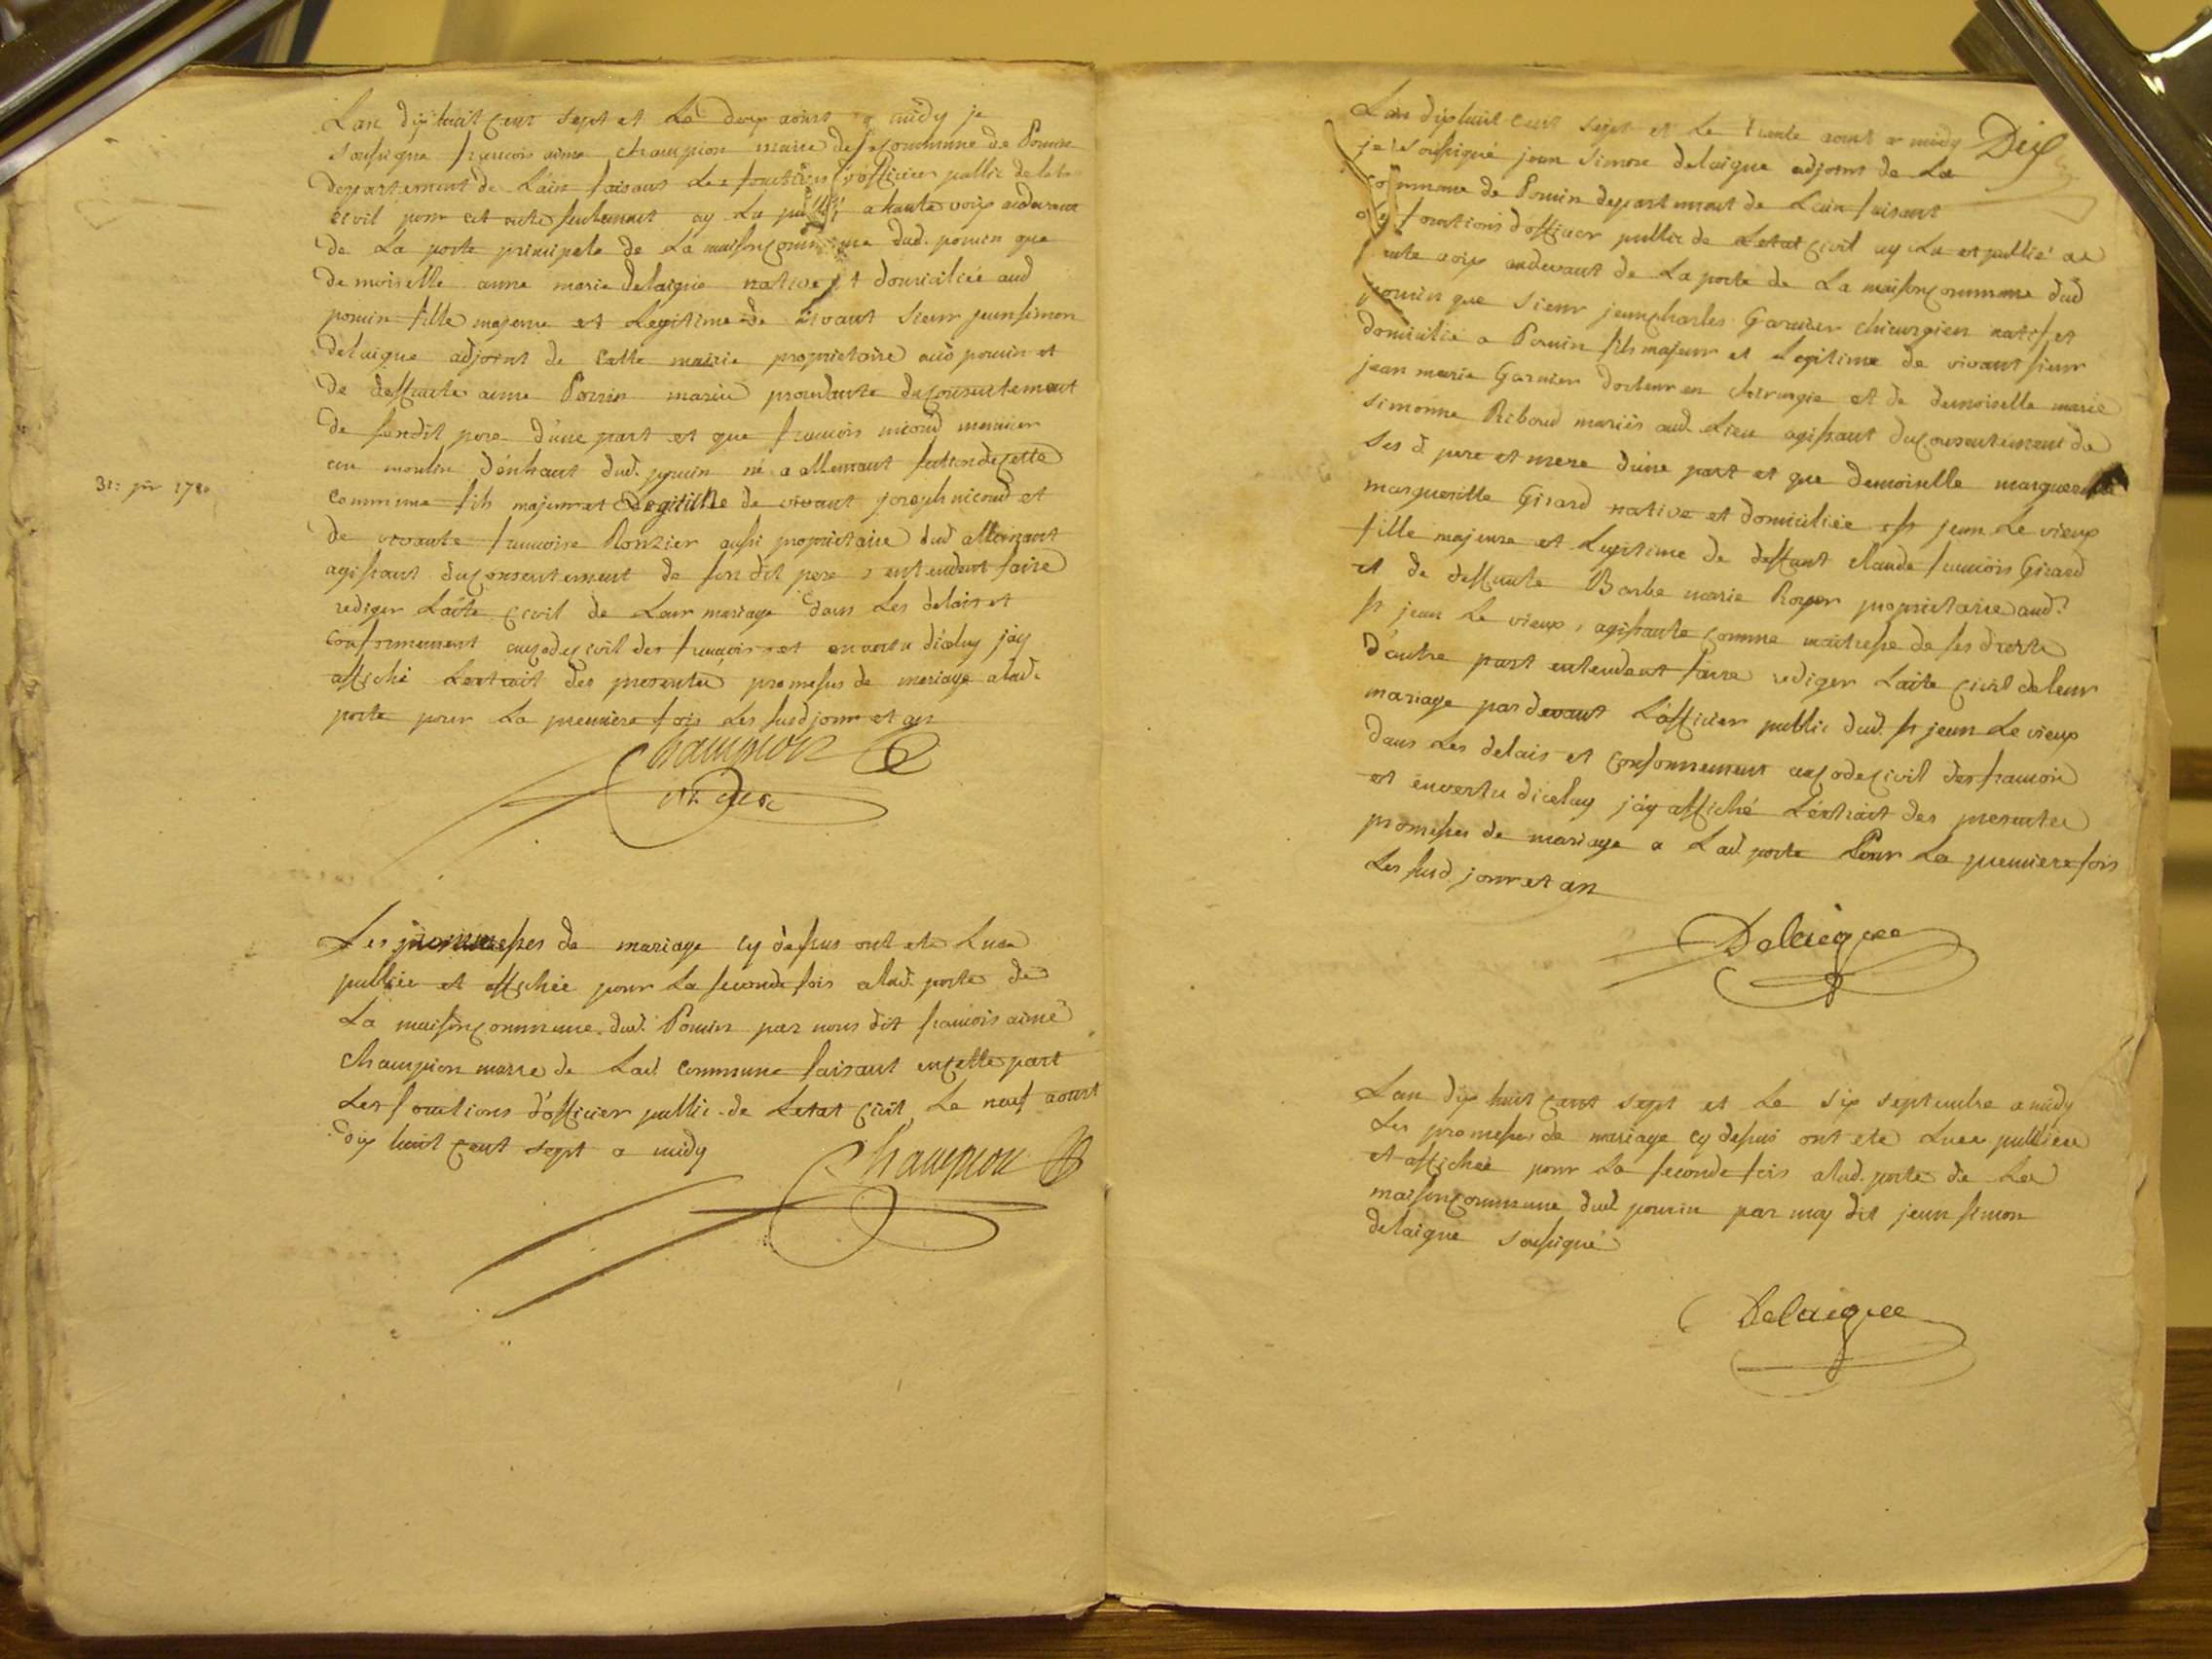 Lan dix huit cent sept et Le deux aoust a midy je
soussigné francois aimé champion maire de la commune de Poncin
departement de Lain faisant Les fonctions d'officier public de letat
civil pour cet acte seulement ay Lu publié a haute voix audevant
de La porte principale de La maison commune dud. poncin que
demoiselle anne marie delaigue native et domiciliée aud
poncin fille majeure et Legitime de vivant sieur jean simon
delaigue adjoint de cette mairie proprietaire aud poncin et
de deffunte anne Perrin mariés procedante du consentement
de sondit pere d'une part et que francois nicoud meunier
au moulin d'enhaut dud. poncin né a allemant section de cette
commune fils majeur et Legitime de vivant joseph nicoud et
31: 1780
de vivante francoise Ronzier aussi proprietaire dud allemant
agissant du consentement de son dit pere, entendent faire
rediger Lacte civil de Leur mariage dans Les delais et
conformement au code civil des francois et en vertu diceluy j'ay
affiché Lextrait des presentes promesses de mariage a lad.
porte pour La premiere fois Les susd jour et an
Champion
maire
Les promesses de mariage cy dessus ont ete Lues
publiée et affichée pour La seconde fois a lad. porte de
La maison commune dud. Poncin par nous dit francois aimé
champion maire de Lad. commune faisant en cette part
Les fonctions d'officier public de Letat civil Le neuf aoust
dix huit cent sept a midy
Champion
Lan dix huit cent sept et Le trente aout a midy
Dix
je soussigné jean simon delaigue adjoint de La
commune de Poncin departement de Lain faisant
les fonctions d'officier public de Letat civil ay Lu et publié a
aute voix audevant de La porte de La maison commune dud
poncin que sieur jean charles Garnier chirurgien natif et
domicilié a Poncin fils majeur et Legitime de vivant sieur
jean marie Garnier docteur en chirurgie et de demoiselle marie
simonne Riboud mariés aud. Lieu agissant du consentement de
ses d. pere et mere d'une part et que demoiselle marguerite
marguerite Girard native et domiciliée a st jean Le vieux
fille majeure et Legitime de deffunt claude francois Girard
et de deffunte Barbe marie Royer proprietaire aud.
st jean Le vieux, agissante comme maitresse de ses droits
d'autre part entendent faire rediger Lacte civil de leur
mariage par devant L'officier public dud. st jean Le vieux
dans Les delais et conformement au code civil des francois
et en vertu dicelluy j'ay affiché L'extrait des presentes
promesses de mariage a Lad. porte Pour La premiere fois
Les susd. jour et an
Delaigue
Lan dix huit cent sept et Le six septembre a midy
Les promesses de mariage cy dessus ont ete Lues publiées
et affichée pour La seconde fois a lad. porte de La
maison commune dud poncin par moy dit jean simon
delaigue soussigné
Delaigue